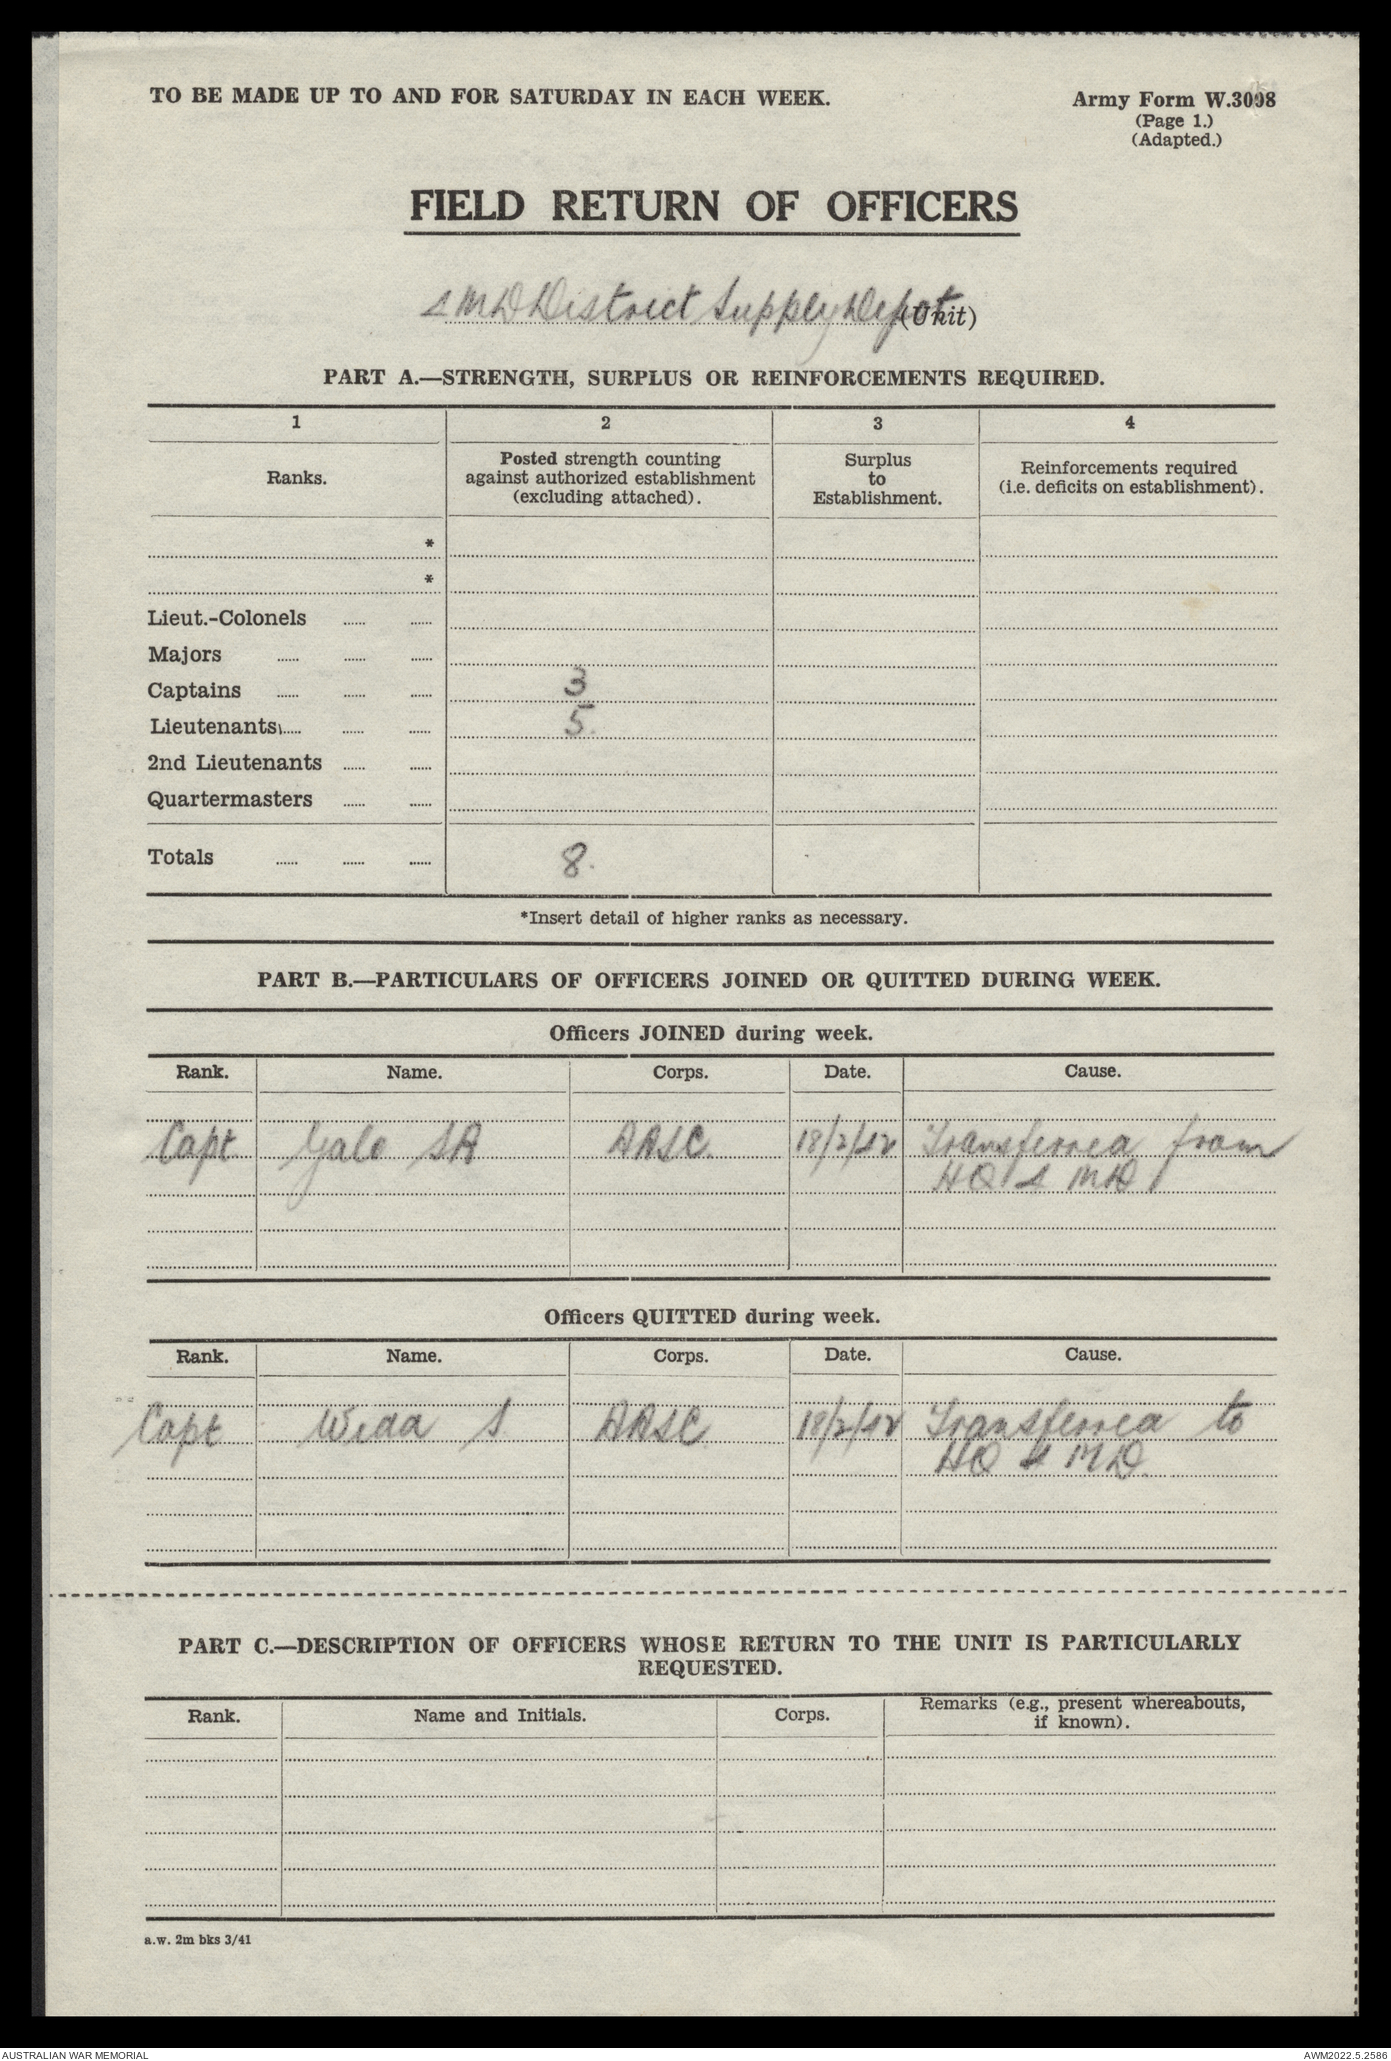 TO BE MADE UP TO AND FOR SATURDAY IN EACH WEEK.
Army Form W.3008
(Page 1.)
(Adapted.)
FIELD RETURN OF OFFICERS
4 M D District Supply Depot (Unit)
PART A.—STRENGTH, SURPLUS OR REINFORCEMENTS REQUIRED.
1 2 3 4
Ranks.
Posted strength counting
against authorized establishment
(excluding attached).
Surplus
to
Establishment.
Reinforcements required
(i.e. deficits on establishment).
*
*
Lieut.-Colonels ...... ......
Majors ...... ...... ......
Captains ...... ...... ...... 3
Lieutenants ...... ...... ...... 5.
2nd Lieutenants ...... ......
Quartermasters ...... ......
Totals ...... ...... ...... 8.
*Insert detail of higher ranks as necessary.
PART B.—PARTICULARS OF OFFICERS JOINED OR QUITTED DURING WEEK.
Officers JOINED during week.
Rank. Name. Corps. Date. Cause.
Capt SA AASC. 18/2/42 Transferred from
HQ 4 MD
Officers QUITTED during week.
Rank. Name. Corps. Date. Cause.
Capt S. AASC. 18/2/42 Transferred to
HQ 4 MD.
PART C.—DESCRIPTION OF OFFICERS WHOSE RETURN TO THE UNIT IS PARTICULARLY
REQUESTED.
Rank. Name and Initials. Corps.
Remarks (e.g., present whereabouts,
if known).
a.w. 2m bks 3/41
AUSTRALIAN WAR MEMORIAL
AWM2022.5.2586